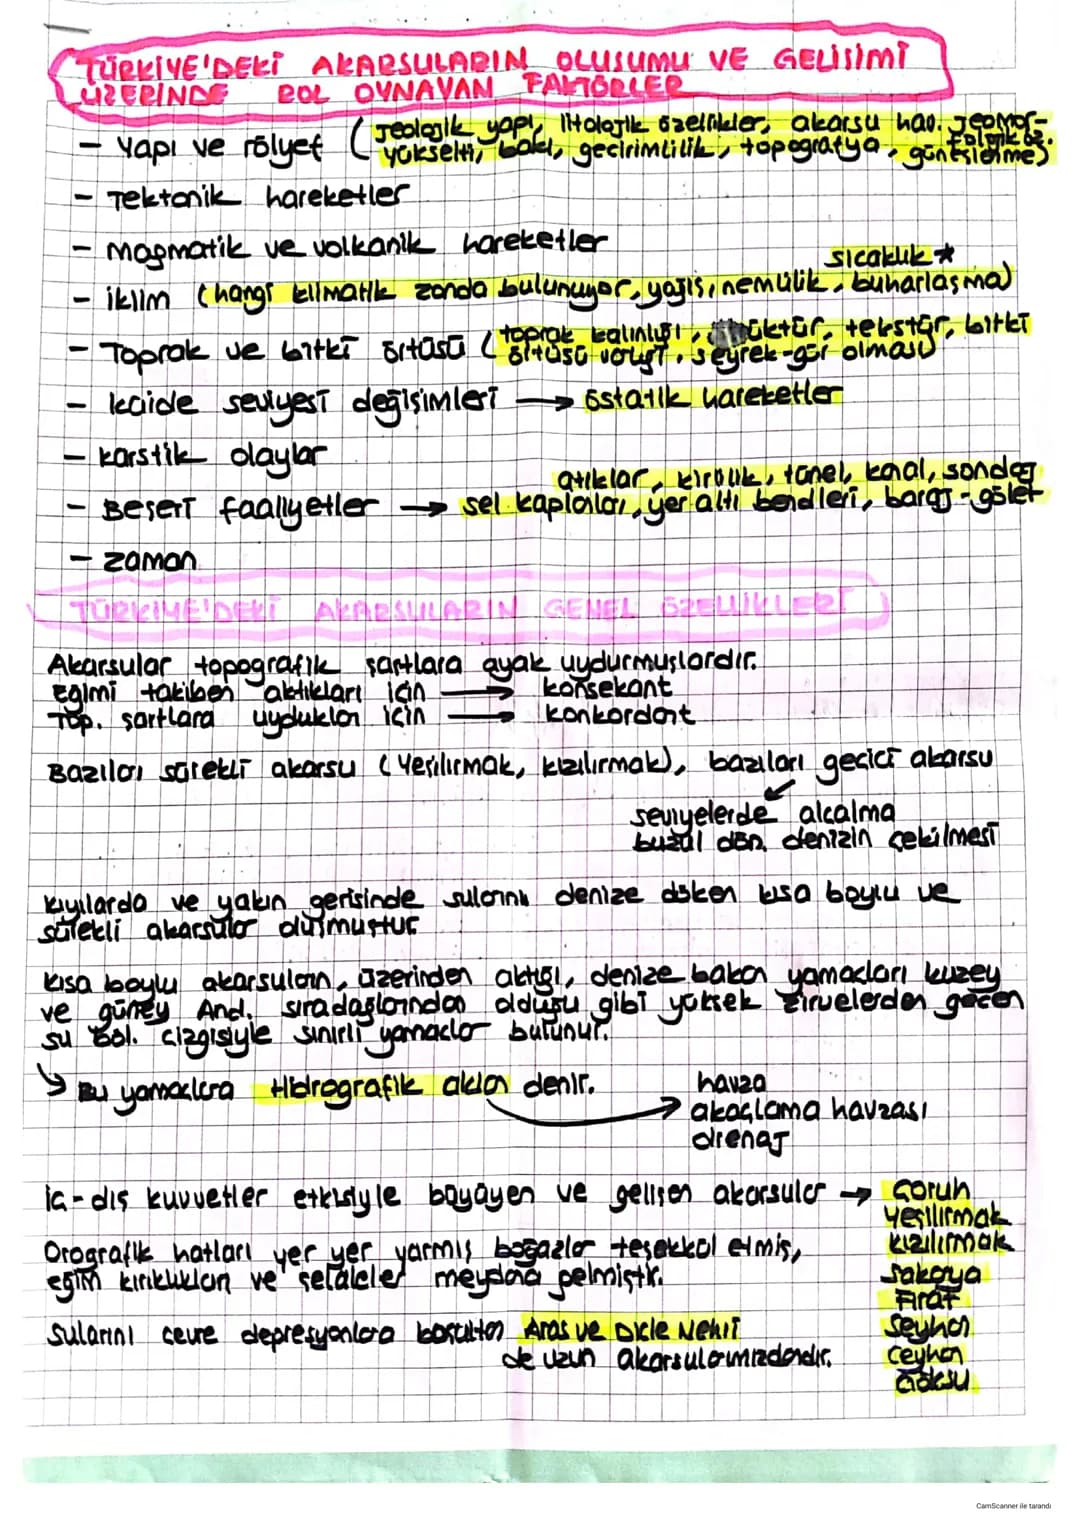 TÜRKİYE'DEKİ AKARSULARIN OLUŞUMU VE GELİŞİMİ
ÜZERİNDE ROL OYNAYAN FAKTÖRLER
- Yapı ve rölyef (Jeolojik yapı, litolojik özellikler, akarsu hav. jeomor-
folojik öz.
yükselti, bakı, geçirimlilik, topografya, güneşlenme)
- Tektonik hareketler
- Magmatik ve volkanik hareketler
sıcaklık *
- iklim (hangi klimatik zonda bulunuyor, yağış, nemlilik, buharlaşma)
- Toprak ve bitki örtüsü (toprak kalınlığı, tekstür, bitki
örtüsü, seyrek-gür olması)
- kaide seviyesi değişimleri → östatik hareketler
- karstik olaylar
atıklar, kirlilik, tünel, kanal, sondaj
- Beşeri faaliyetler → sel kapanları, yer altı bendleri, baraj-gölet
- zaman
TÜRKİYE'DEKİ AKARSULARIN GENEL ÖZELLİKLERİ
Akarsular topografik şartlara ayak uydurmuşlardır.
Eğimi takiben aktıkları için → konsekant
Top. şartlara uydukları için → konkordant
Bazıları sürekli akarsu (Yeşilırmak, kızılırmak), bazıları geçici akarsu
seviyelerde alçalma
buzul dön. denizin çekilmesi
kıyılarda ve yakın gerisinde sularını denize döken kısa boylu ve
sürekli akarsular oluşmuştur
kısa boylu akarsuların, üzerinden aktığı, denize bakan yamaçları kuzey
ve güney And. sıradağlarından olduğu gibi yüksek zirvelerden geçen
su böl. çizgisiyle sınırlı yamaçlar bulunur.
↳ Bu yamaçlara Hidrografik aklan denir.
havza
akaçlama havzası
drenaj
iç-dış kuvvetler etkisiyle büyüyen ve gelişen akarsular → Çoruh
Yeşilırmak
kızılırmak
Sakarya
Fırat
Seyhan
Ceyhan
Göksu
Orografik hatları yer yer yarmış boğazlar teşekkül etmiş,
eğim kırıklıkları ve şelaleler meydana gelmiştir.
Sularını çevre depresyonlara boşaltan Aras ve Dicle Nehri
de uzun akarsularımızdandır.
CamScanner ile tarandı